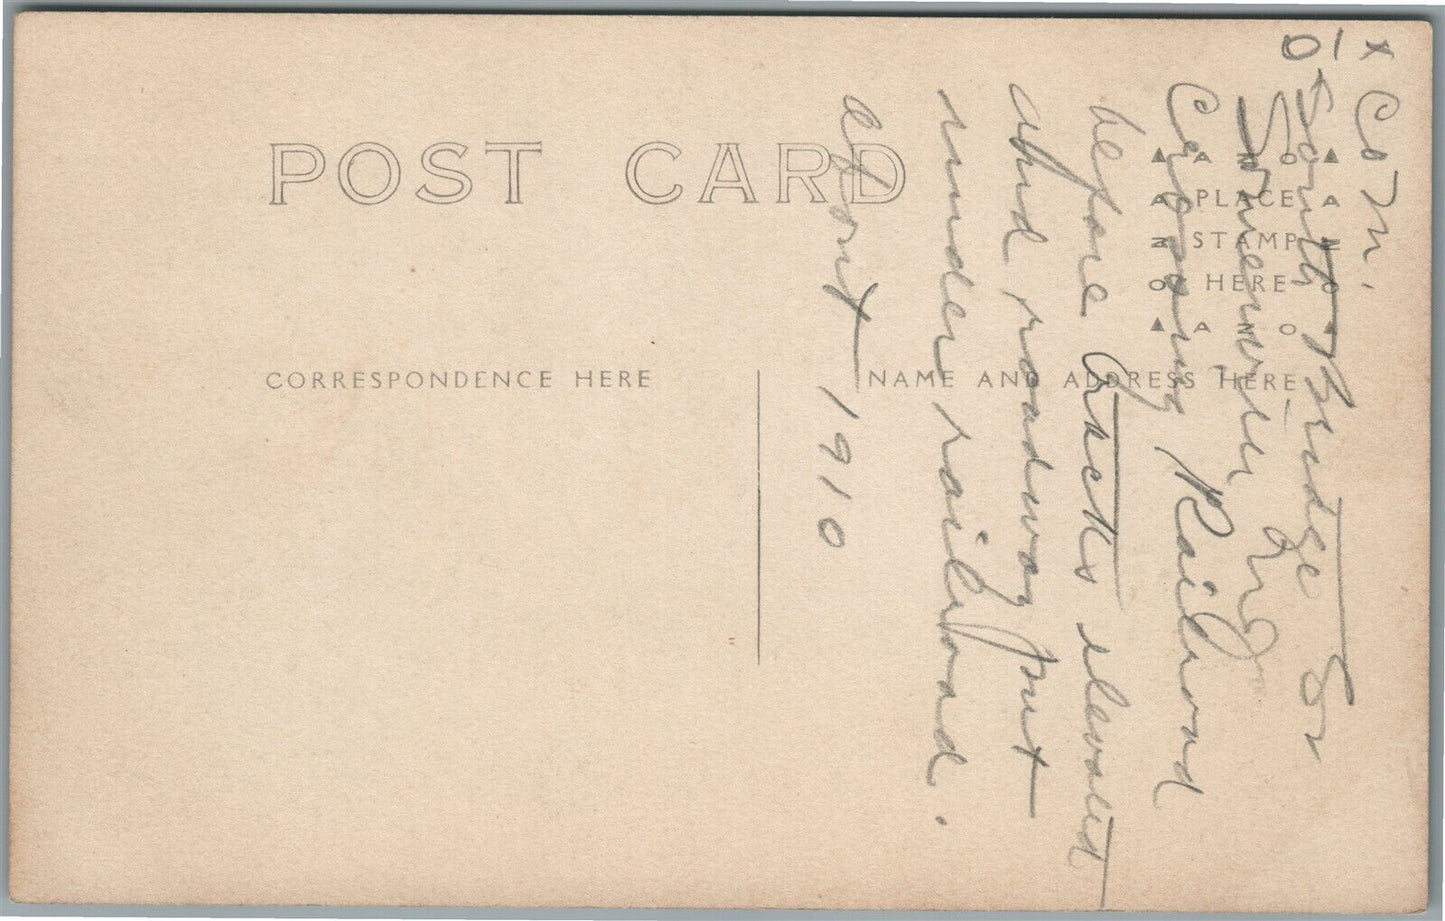 POST CARD
CORRESPONDENCE HERE
NAME AND ADDRESS HERE
▲ A Z O ▲
PLACE
STAMP
HERE
▲ A Z O ▲
x Co M.
10
South Bridge St
Somerville NJ
Crossing Railroad
before tracks elevated
and roadway put
under railroad.
about 1910